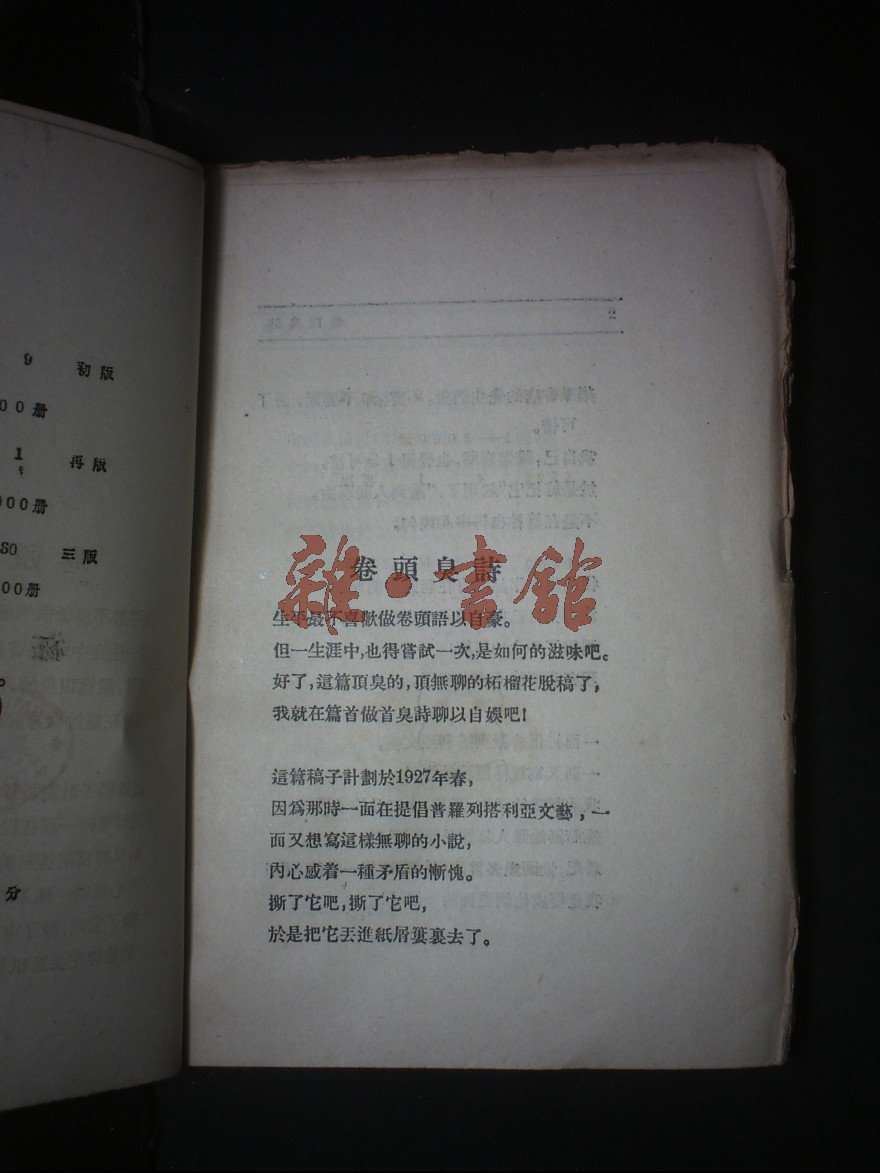 9 初版
00册
1 再版
000册
30 三版
00册
分
雜·書館
卷頭臭詩
生平最不喜歡做卷頭語以自豪。
但一生涯中,也得嘗試一次,是如何的滋味吧。
好了,這篇頂臭的,頂無聊的柘榴花脫稿了,
我就在篇首做首臭詩聊以自娛吧!
這篇稿子計劃於1927年春,
因爲那時一面在提倡普羅列搭利亞文藝,一
面又想寫這樣無聊的小說,
內心感着一種矛盾的慚愧。
撕了它吧,撕了它吧,
於是把它丟進紙屑簍裏去了。